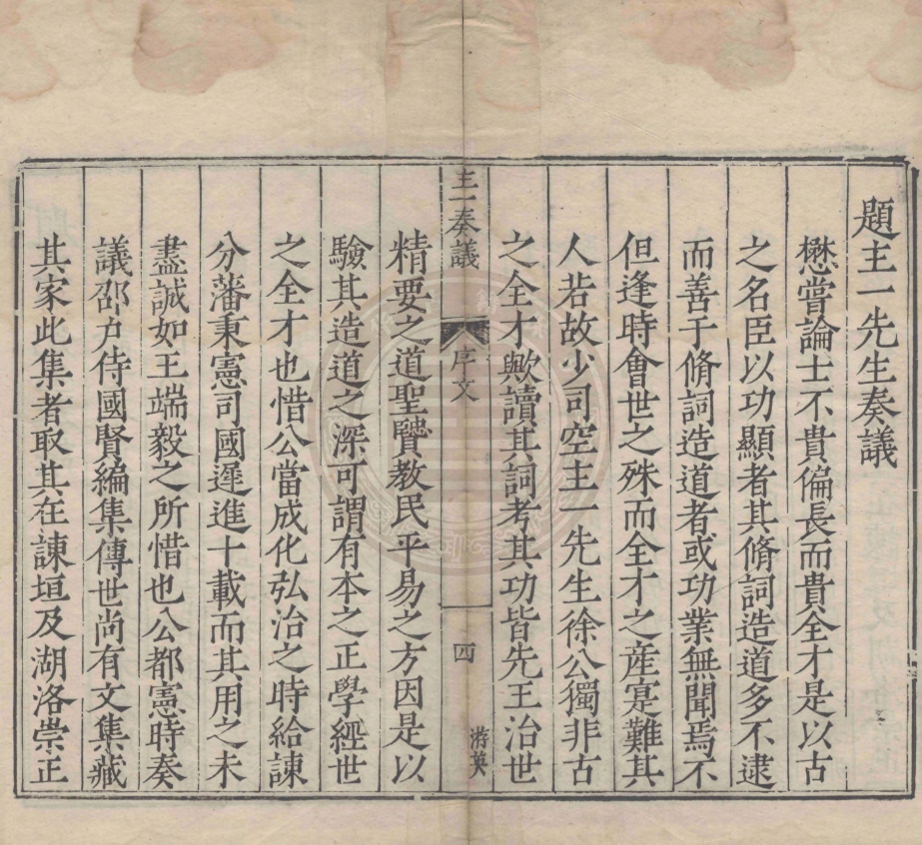 題主一先生奏議
懋嘗論士不貴偏長而貴全才是以古
之名臣以功顯者其脩詞造道多不逮
而善于脩詞造道者或功業無聞焉不
但逢時會世之殊而全才之産寔難其
人若故少司空主一先生徐公獨非古
之全才歟讀其詞考其功皆先王治世
主一奏議
序文
四
游英
精要之道聖賢教民平易之方因是以
驗其造道之深可謂有本之正學經世
之全才也惜公當成化弘治之時給諫
分藩秉憲司國遲進十載而其用之未
盡誠如王端毅之所惜也公都憲時奏
議邵户侍國賢編集傳世尚有文集藏
其家此集者取其在諫垣及湖洛崇正